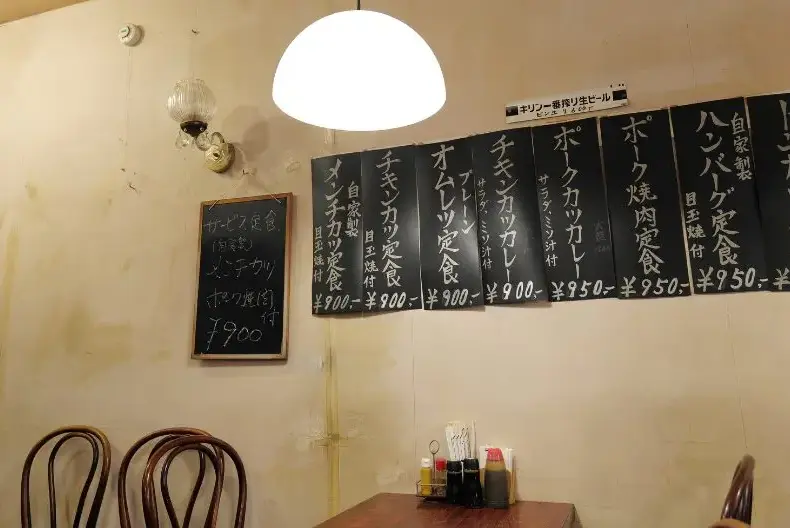 キリン一番搾り生ビール
サービス定食
(自家製)
メンチカツ
ポーク焼肉
付
¥900
自家製
メンチカツ定食
目玉焼付
¥900-
チキンカツ定食
目玉焼付
¥900-
プレーン
オムレツ定食
¥900-
チキンカツカレー
サラダ、ミソ汁付
¥900-
ポークカツカレー
サラダ、ミソ汁付
¥950-
ポーク焼肉定食
¥950-
自家製
ハンバーグ定食
目玉焼付
¥950-